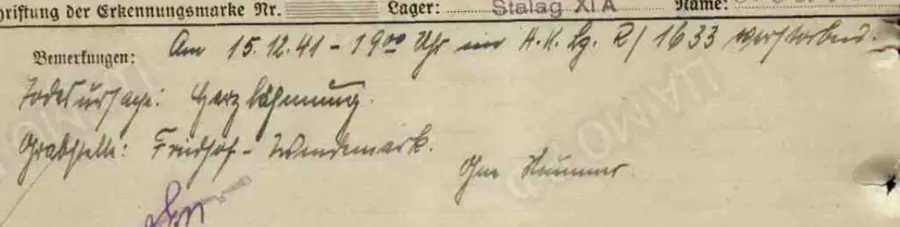 hriftung der Erkennungsmarke Nr. Lager: Stalag XI A Name:
Bemerkungen: Am 15.12.41 - 19⁰⁰ Uhr im A.K. Lg. R/1633 verstorben.
Todesursache: Herzlähmung.
Grabstelle: Friedhof - Wendemark.